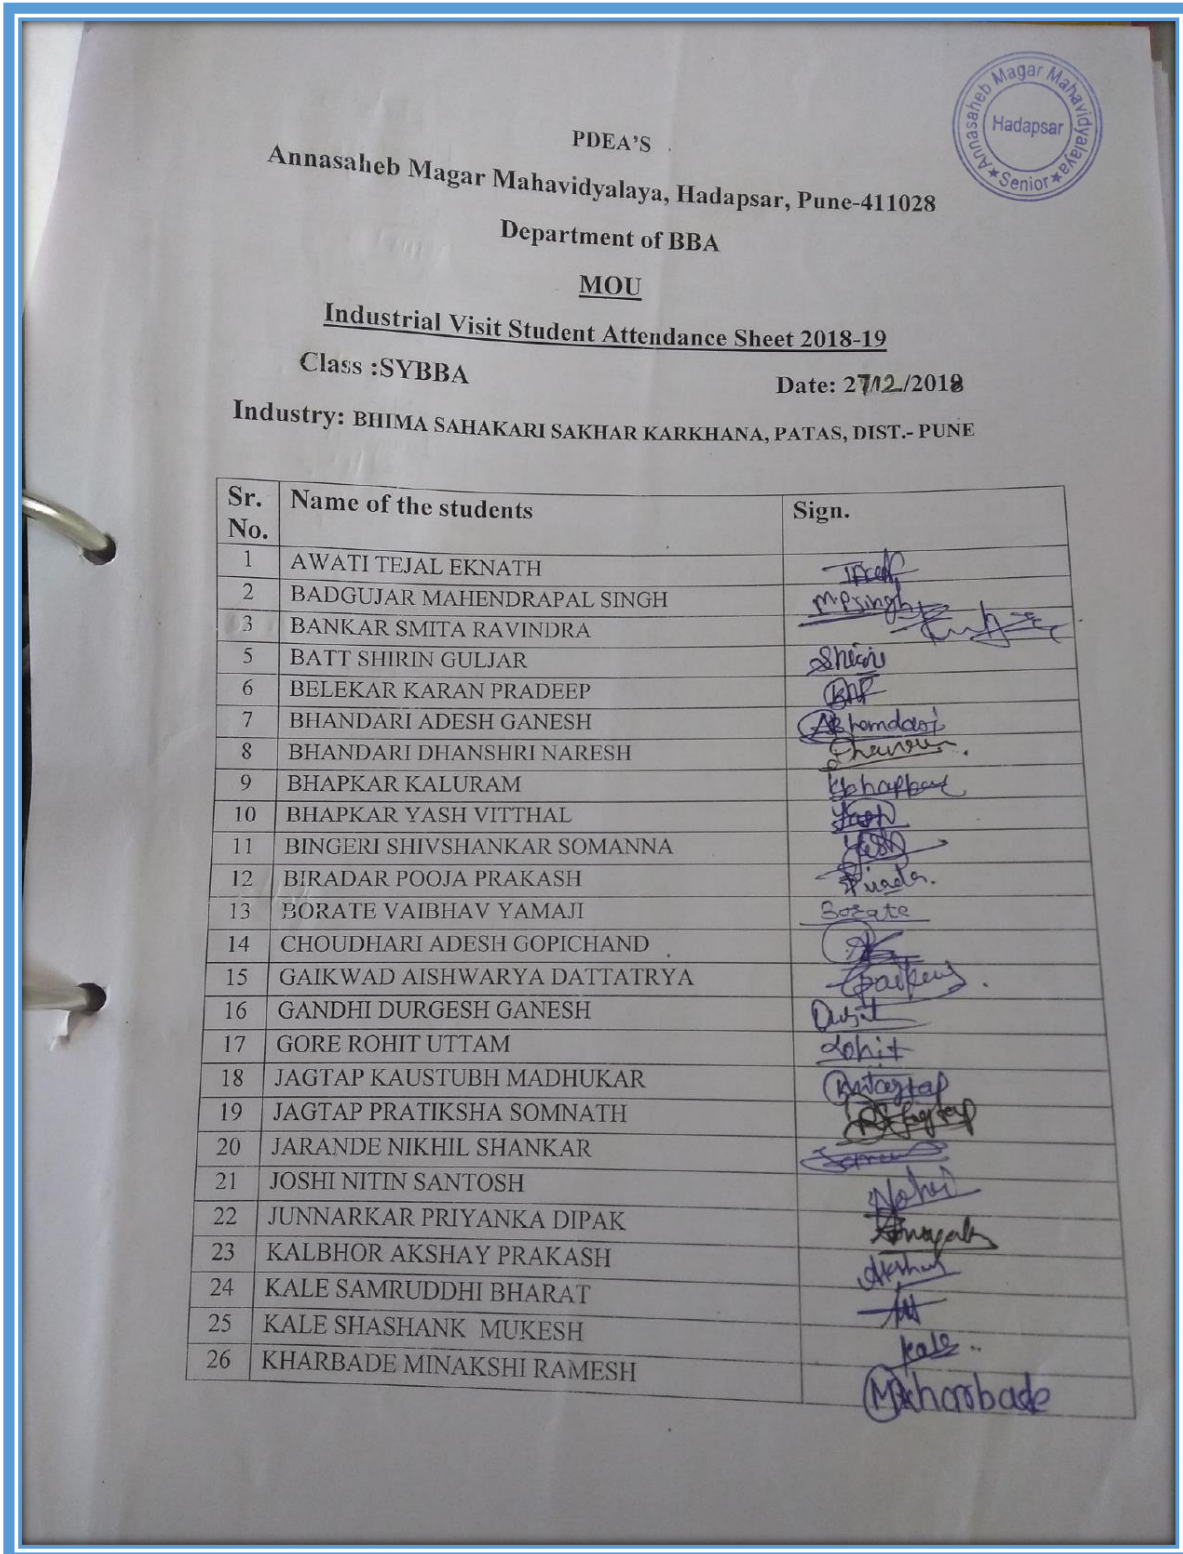 Annasaheb Magar Mahavidyalaya
Hadapsar
★ Senior ★
PDEA'S
Annasaheb Magar Mahavidyalaya, Hadapsar, Pune-411028
Department of BBA
MOU
Industrial Visit Student Attendance Sheet 2018-19
Class :SYBBA Date: 27/12/2018
Industry: BHIMA SAHAKARI SAKHAR KARKHANA, PATAS, DIST.- PUNE
Sr. No. Name of the students Sign.
1 AWATI TEJAL EKNATH
2 BADGUJAR MAHENDRAPAL SINGH M.P.Singh
3 BANKAR SMITA RAVINDRA
5 BATT SHIRIN GULJAR Shirin
6 BELEKAR KARAN PRADEEP
7 BHANDARI ADESH GANESH
8 BHANDARI DHANSHRI NARESH
9 BHAPKAR KALURAM
10 BHAPKAR YASH VITTHAL Yash
11 BINGERI SHIVSHANKAR SOMANNA
12 BIRADAR POOJA PRAKASH
13 BORATE VAIBHAV YAMAJI Borate
14 CHOUDHARI ADESH GOPICHAND
15 GAIKWAD AISHWARYA DATTATRYA
16 GANDHI DURGESH GANESH
17 GORE ROHIT UTTAM Rohit
18 JAGTAP KAUSTUBH MADHUKAR
19 JAGTAP PRATIKSHA SOMNATH
20 JARANDE NIKHIL SHANKAR
21 JOSHI NITIN SANTOSH
22 JUNNARKAR PRIYANKA DIPAK
23 KALBHOR AKSHAY PRAKASH
24 KALE SAMRUDDHI BHARAT
25 KALE SHASHANK MUKESH Kale
26 KHARBADE MINAKSHI RAMESH MKharbade